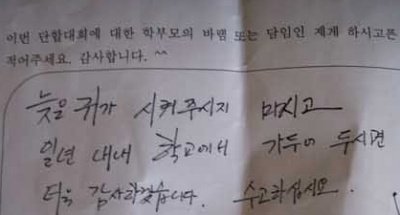 이번 단합대회에 대한 학부모의 바램 또는 담임인 제게 하시고픈
적어주세요. 감사합니다. ^^
늦은 귀가 시켜주시지 마시고
일년 내내 학교에서 가두어 두시면
더욱 감사하겠습니다. 수고하십시요.